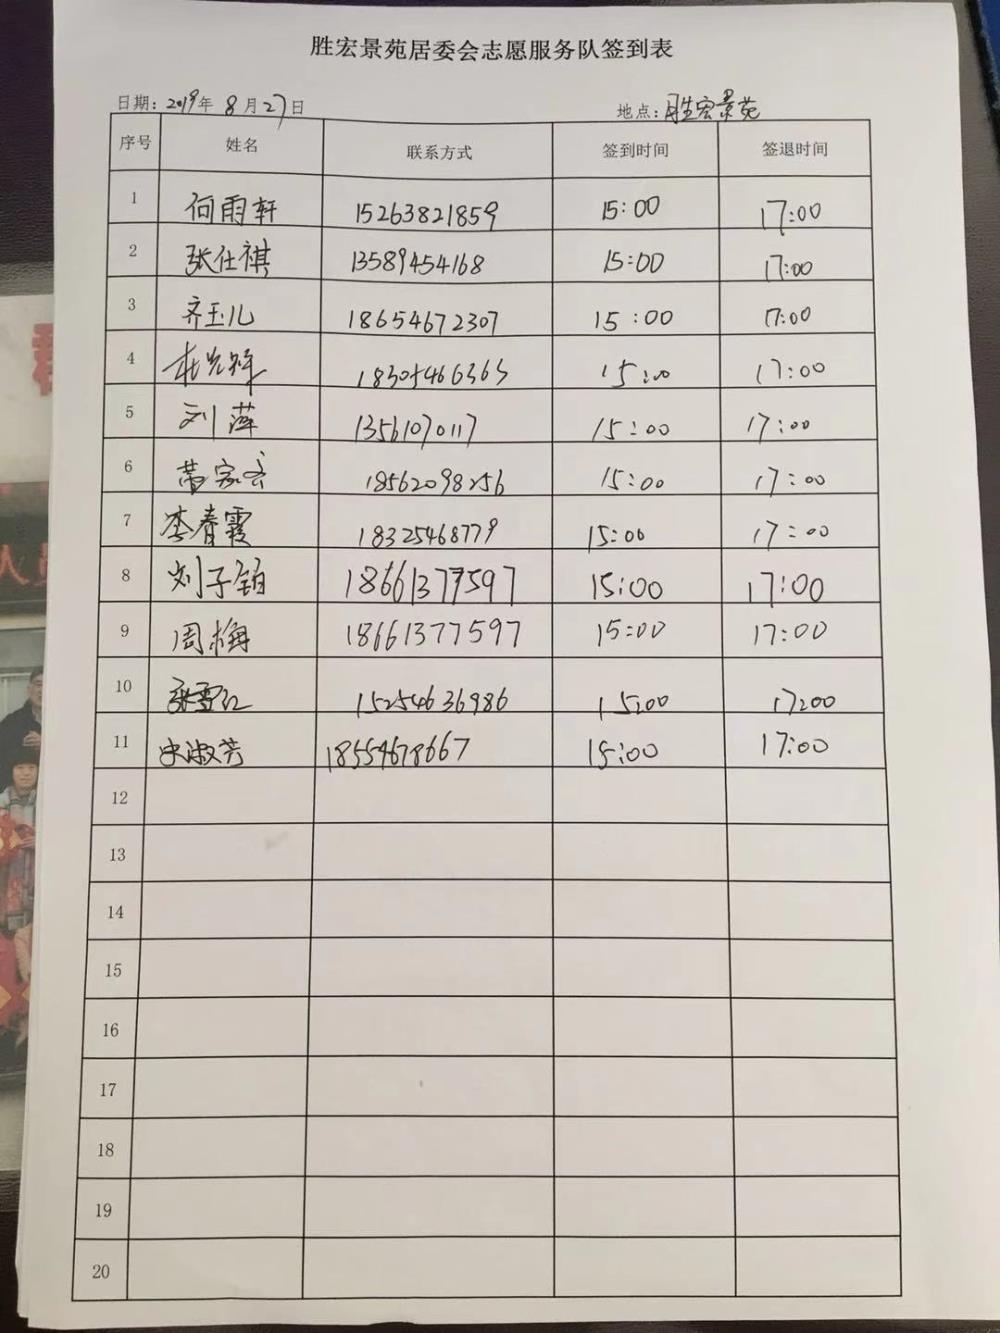 胜宏景苑居委会志愿服务队签到表
日期: 2019年 8月27日 地点: 胜宏景苑
序号 姓名 联系方式 签到时间 签退时间
1 何雨轩 15263821859 15:00 17:00
2 张仕祺 13589454168 15:00 17:00
3 齐玉儿 18654672307 15:00 17:00
4 15:00 17:00
5 刘萍 13561070117 15:00 17:00
6 18562098256 15:00 17:00
7 李春霞 18325468779 15:00 17:00
8 刘子铂 18661377597 15:00 17:00
9 周梅 18661377597 15:00 17:00
10 张雪红 15254636986 15:00 17:00
11 宋淑芳 18554678667 15:00 17:00
12
13
14
15
16
17
18
19
20